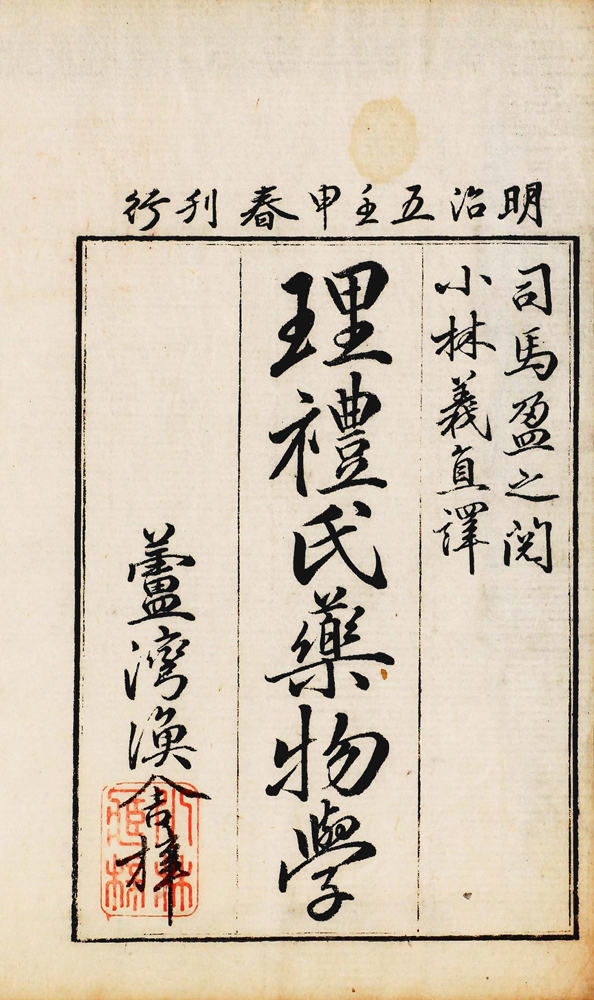 明治五壬申春刊行
司馬盈之閲
小林義直譯
理禮氏藥物學
蘆灣漁舎梓